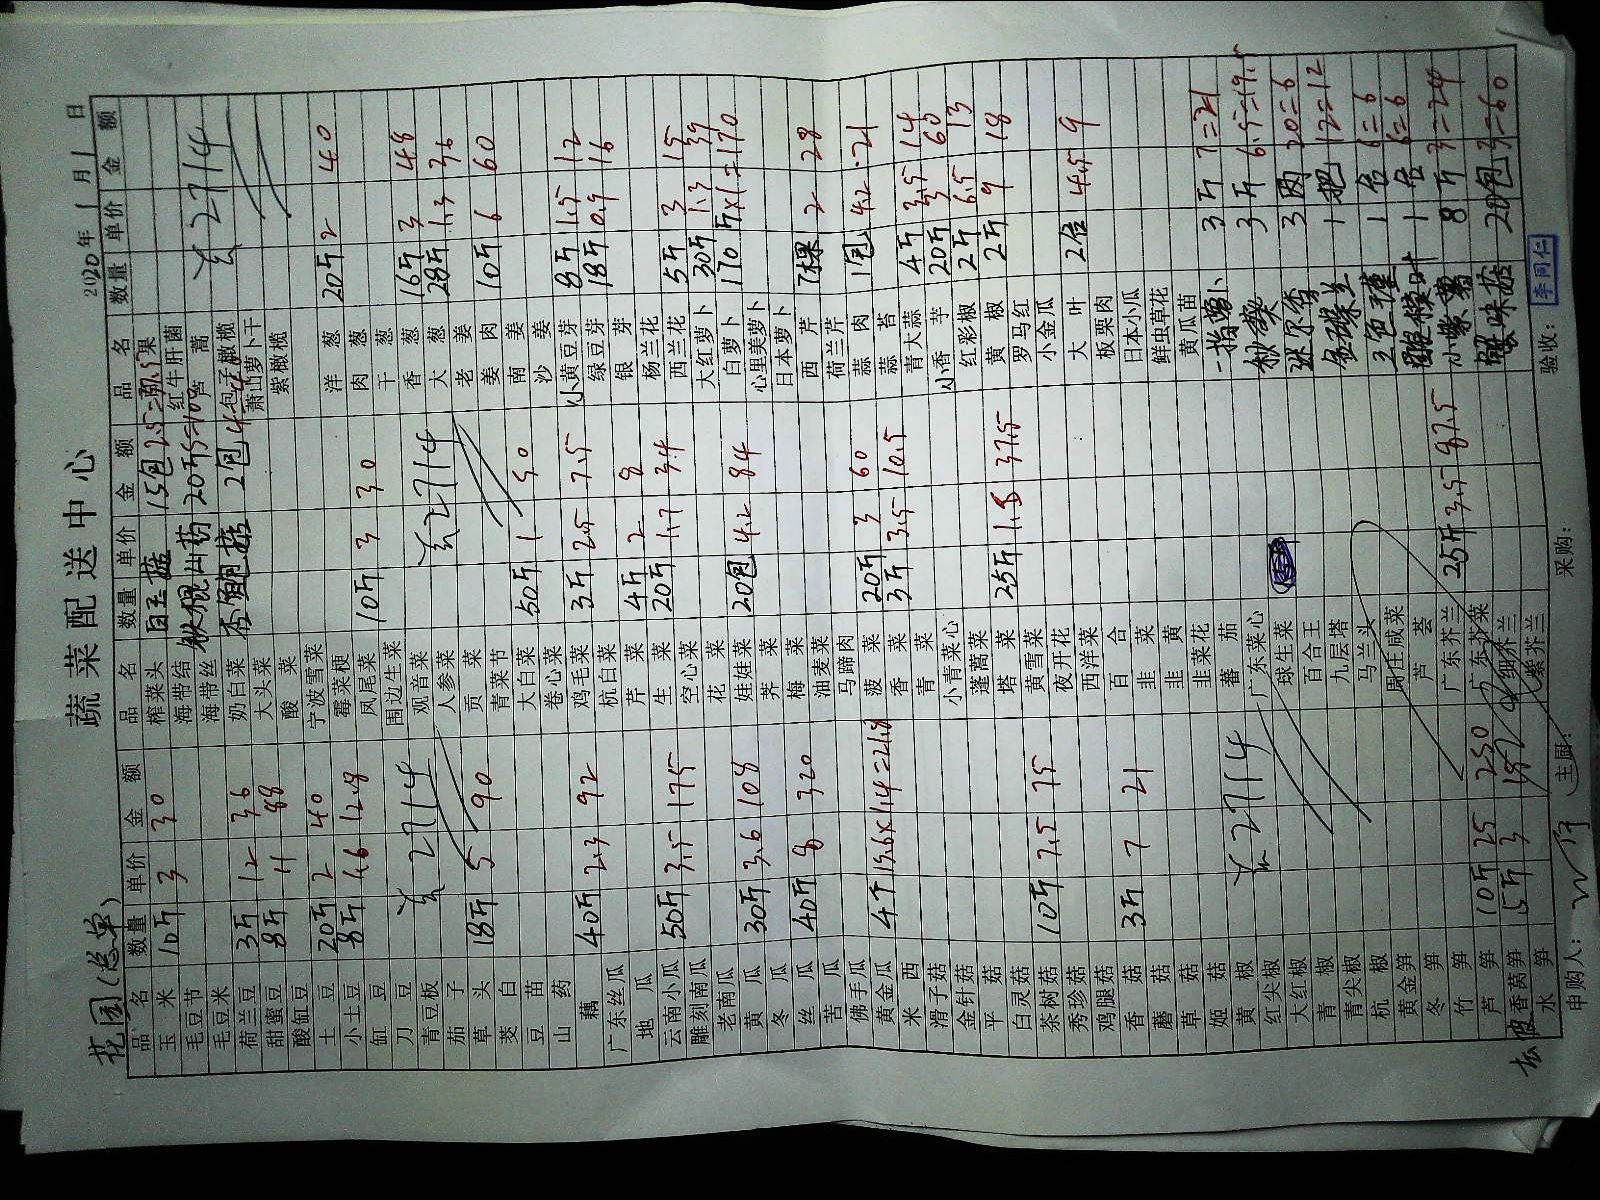 蔬菜配送中心
花园(总单) 2020年1月1日
品名 数量 单价 金额 品名 数量 单价 金额 品名 数量 单价 金额
玉米 10斤 3 30 榨菜头 白玉菇 15包 2.5=37.5
毛豆节 海带结 铁棍山药 20斤 红牛肝菌
毛豆米 海带丝 芦蒿 去2714
荷兰豆 3斤 12 36 奶白菜 杏鲍菇 2包 包子橄榄
甜蜜豆 8斤 11 88 大头菜 萧山萝卜干
酸缸豆 酸菜 紫橄榄
土豆 20斤 2 40 宁波雪菜
小土豆 8斤 1.6 12.8 霉菜梗 洋葱 20斤 2 40
缸豆 凤尾菜 10斤 3 30 肉葱
刀豆 去2714 围边生菜 干葱
青豆板 观音菜 去2714 香葱 16斤 3 48
茄子 人参菜 大葱 28斤 1.3 36
草头 18斤 5 90 贡菜 老姜
茭白 青菜节 姜肉 10斤 6 60
豆苗 大白菜 50斤 1 50 南姜
山药 卷心菜 沙姜
藕 40斤 2.3 92 鸡毛菜 3斤 2.5 7.5 小黄豆芽 8斤 1.5 12
广东丝瓜 杭白菜 绿豆芽 18斤 0.9 16
地瓜 芹菜 4斤 2 8 银芽
云南小瓜 50斤 3.5 175 生菜 20斤 1.7 34 杨兰花
雕刻南瓜 空心菜 西兰花 5斤 3 15
老南瓜 花菜 大红萝卜 30斤 1.3 39
黄瓜 30斤 3.6 108 娃娃菜 20包 4.2 84 白萝卜 170斤×1=170
冬瓜 荠菜 心里美萝卜
丝瓜 40斤 8 320 梅菜 日本萝卜
苦瓜 油麦菜 西芹 7棵 2 28
佛手瓜 马蹄肉 荷兰芹
黄金瓜 4个 15.6×1.4=21.8 菠菜 20斤 3 60 蒜肉 1包 4.2 21
米西 香菜 3斤 3.5 10.5 蒜苔
滑子菇 青菜 青大蒜 4斤 3.5 14
金针菇 小青菜心 小香芋 20斤 3 60
平菇 蓬蒿菜 红彩椒 2斤 6.5 13
白灵菇 塔菜 25斤 1.5 37.5 黄椒 2斤 9 18
茶树菇 10斤 7.5 75 黄雪菜 罗马红
秀珍菇 夜开花 小金瓜
鸡腿菇 西洋菜 大叶 2包 4.5 9
香菇 3斤 7 21 百合 板栗肉
蘑菇 韭菜 日本小瓜
草菇 韭黄 鲜虫草花
姬菇 韭菜花 黄瓜苗
黄椒 去2714 蕃茄 3斤 7=21
红尖椒 广东菜心 秋葵 3斤 6.5=19.5
大红椒 球生菜 3两 20=6
青椒 百合王 1把 12=12
青尖椒 九层塔 1盒 6=6
杭椒 马兰头 1盒 6=6
黄金笋 周庄咸菜 8斤 3=24
冬笋 芦荟 20包 3=60
竹笋 广东芥兰 25斤 3.5 87.5
芦笋 10斤 25 250 广东芥菜
香莴笋 5斤 3 细芥兰
水笋 紫芥兰
申购人: 主厨: 采购: 验收: 李同仁